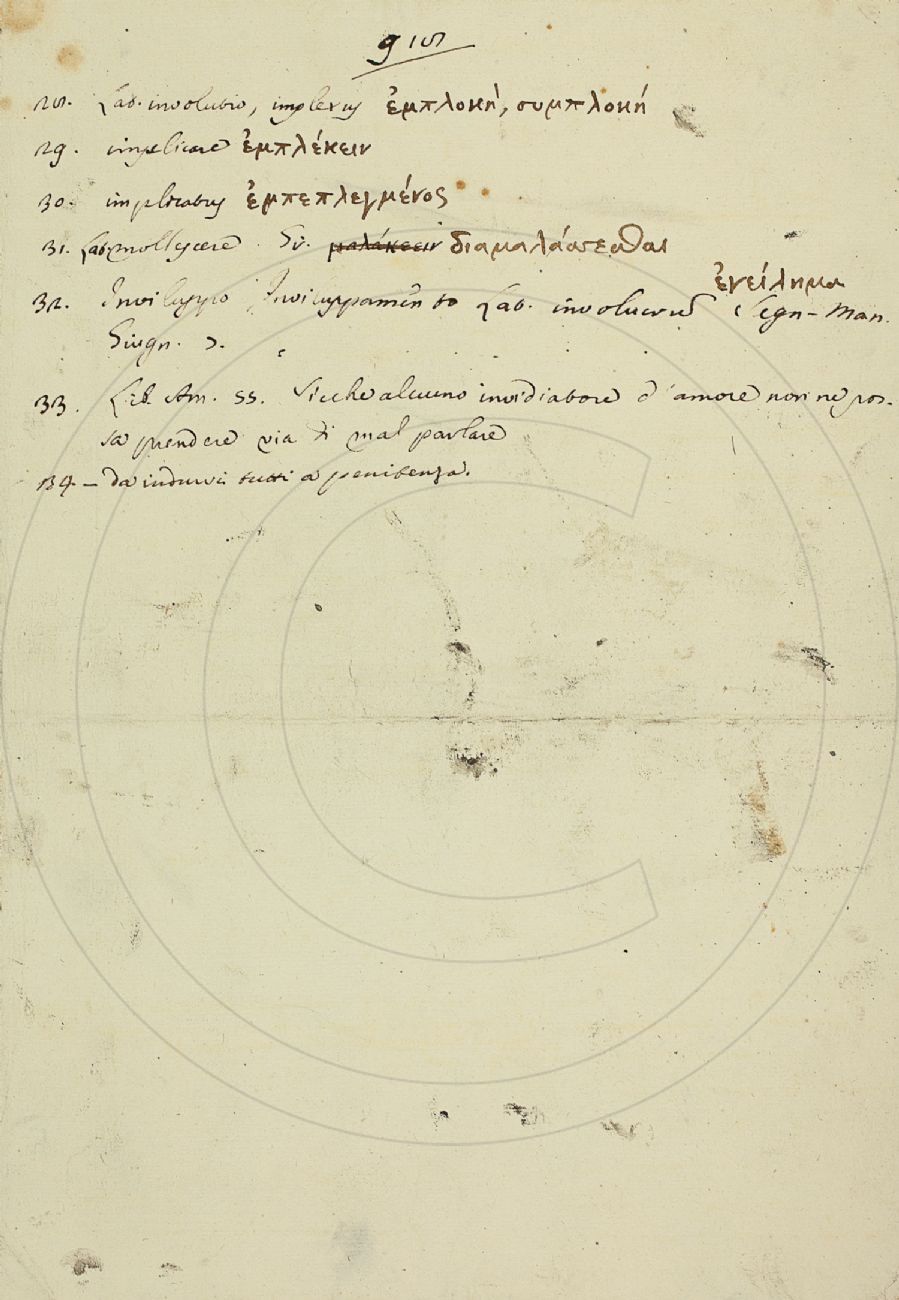 28. Lat. involutio, implexus ἐμπλοκή, συμπλοκή
29. implicare ἐμπλέκειν
30. implicatus ἐμπεπλεγμένος
31. Lat. mollescere. Gr. μαλάκειν διαμαλάσσεσθαι
ἐνείλημα
32. Inviluppo Inviluppamento Lat. involucrum Segn. Man.
Giugn. 5.
33. Lib. Am. 55. Sicchè alcuno invidiatore d'amore non ne pos-
sa prendere via di mal parlare
134 - da indurvi tutti a penitenza.